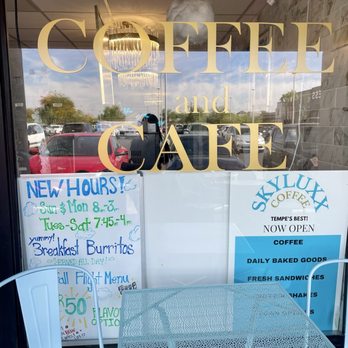 COFFEE
and
CAFE
NEW HOURS!
Sun & Mon 8-3
Tues-Sat 7:45-4pm
yummy!
Breakfast Burritos
SERVED ALL DAY!
Fall Flight Menu
50
FLAVOR
OPTIONS
SKYLUXX
COFFEE
TEMPE'S BEST!
NOW OPEN
COFFEE
DAILY BAKED GOODS
FRESH SANDWICHES
SHAKES